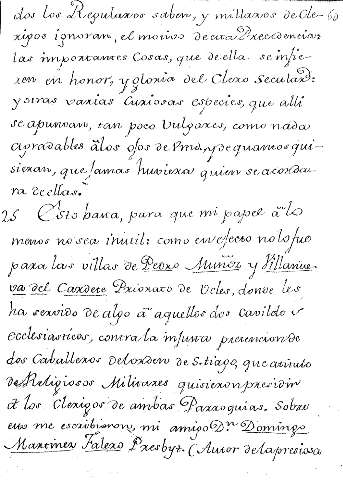 dos los Regulares saben, y millares de Cle-
rigos ignoran, el motivo de esta Precedencia:
las importantes Cosas, que de ella se infie-
ren en honor, y gloria del Clero Secular:
y otras varias Curiosas especies, que alli
se apuntan, tan poco Vulgares, como nada
agradables a los ojos de Vmd, y de quantos qui-
sieran, que jamas huviera quien se acorda-
ra de ellas.
25 Esto basta, para que mi papel a lo
menos no sea inutil: como en efecto no lo fue
para las villas de Pedro Muñoz y Villanue-
va del Cardete Priorato de Ucles, donde les
ha servido de algo a aquellos dos Cavildos
ecclesiasticos, contra la injusta pretension de
dos Caballeros del orden de S.tiago, que a titulo
de Religiosos Militares quisieron presidir
a los Clerigos de ambas Parroquias. Sobre
esto me escribieron, mi amigo Dn. Domingo
Martinez Falero Presbyt. (Autor de la preciosa